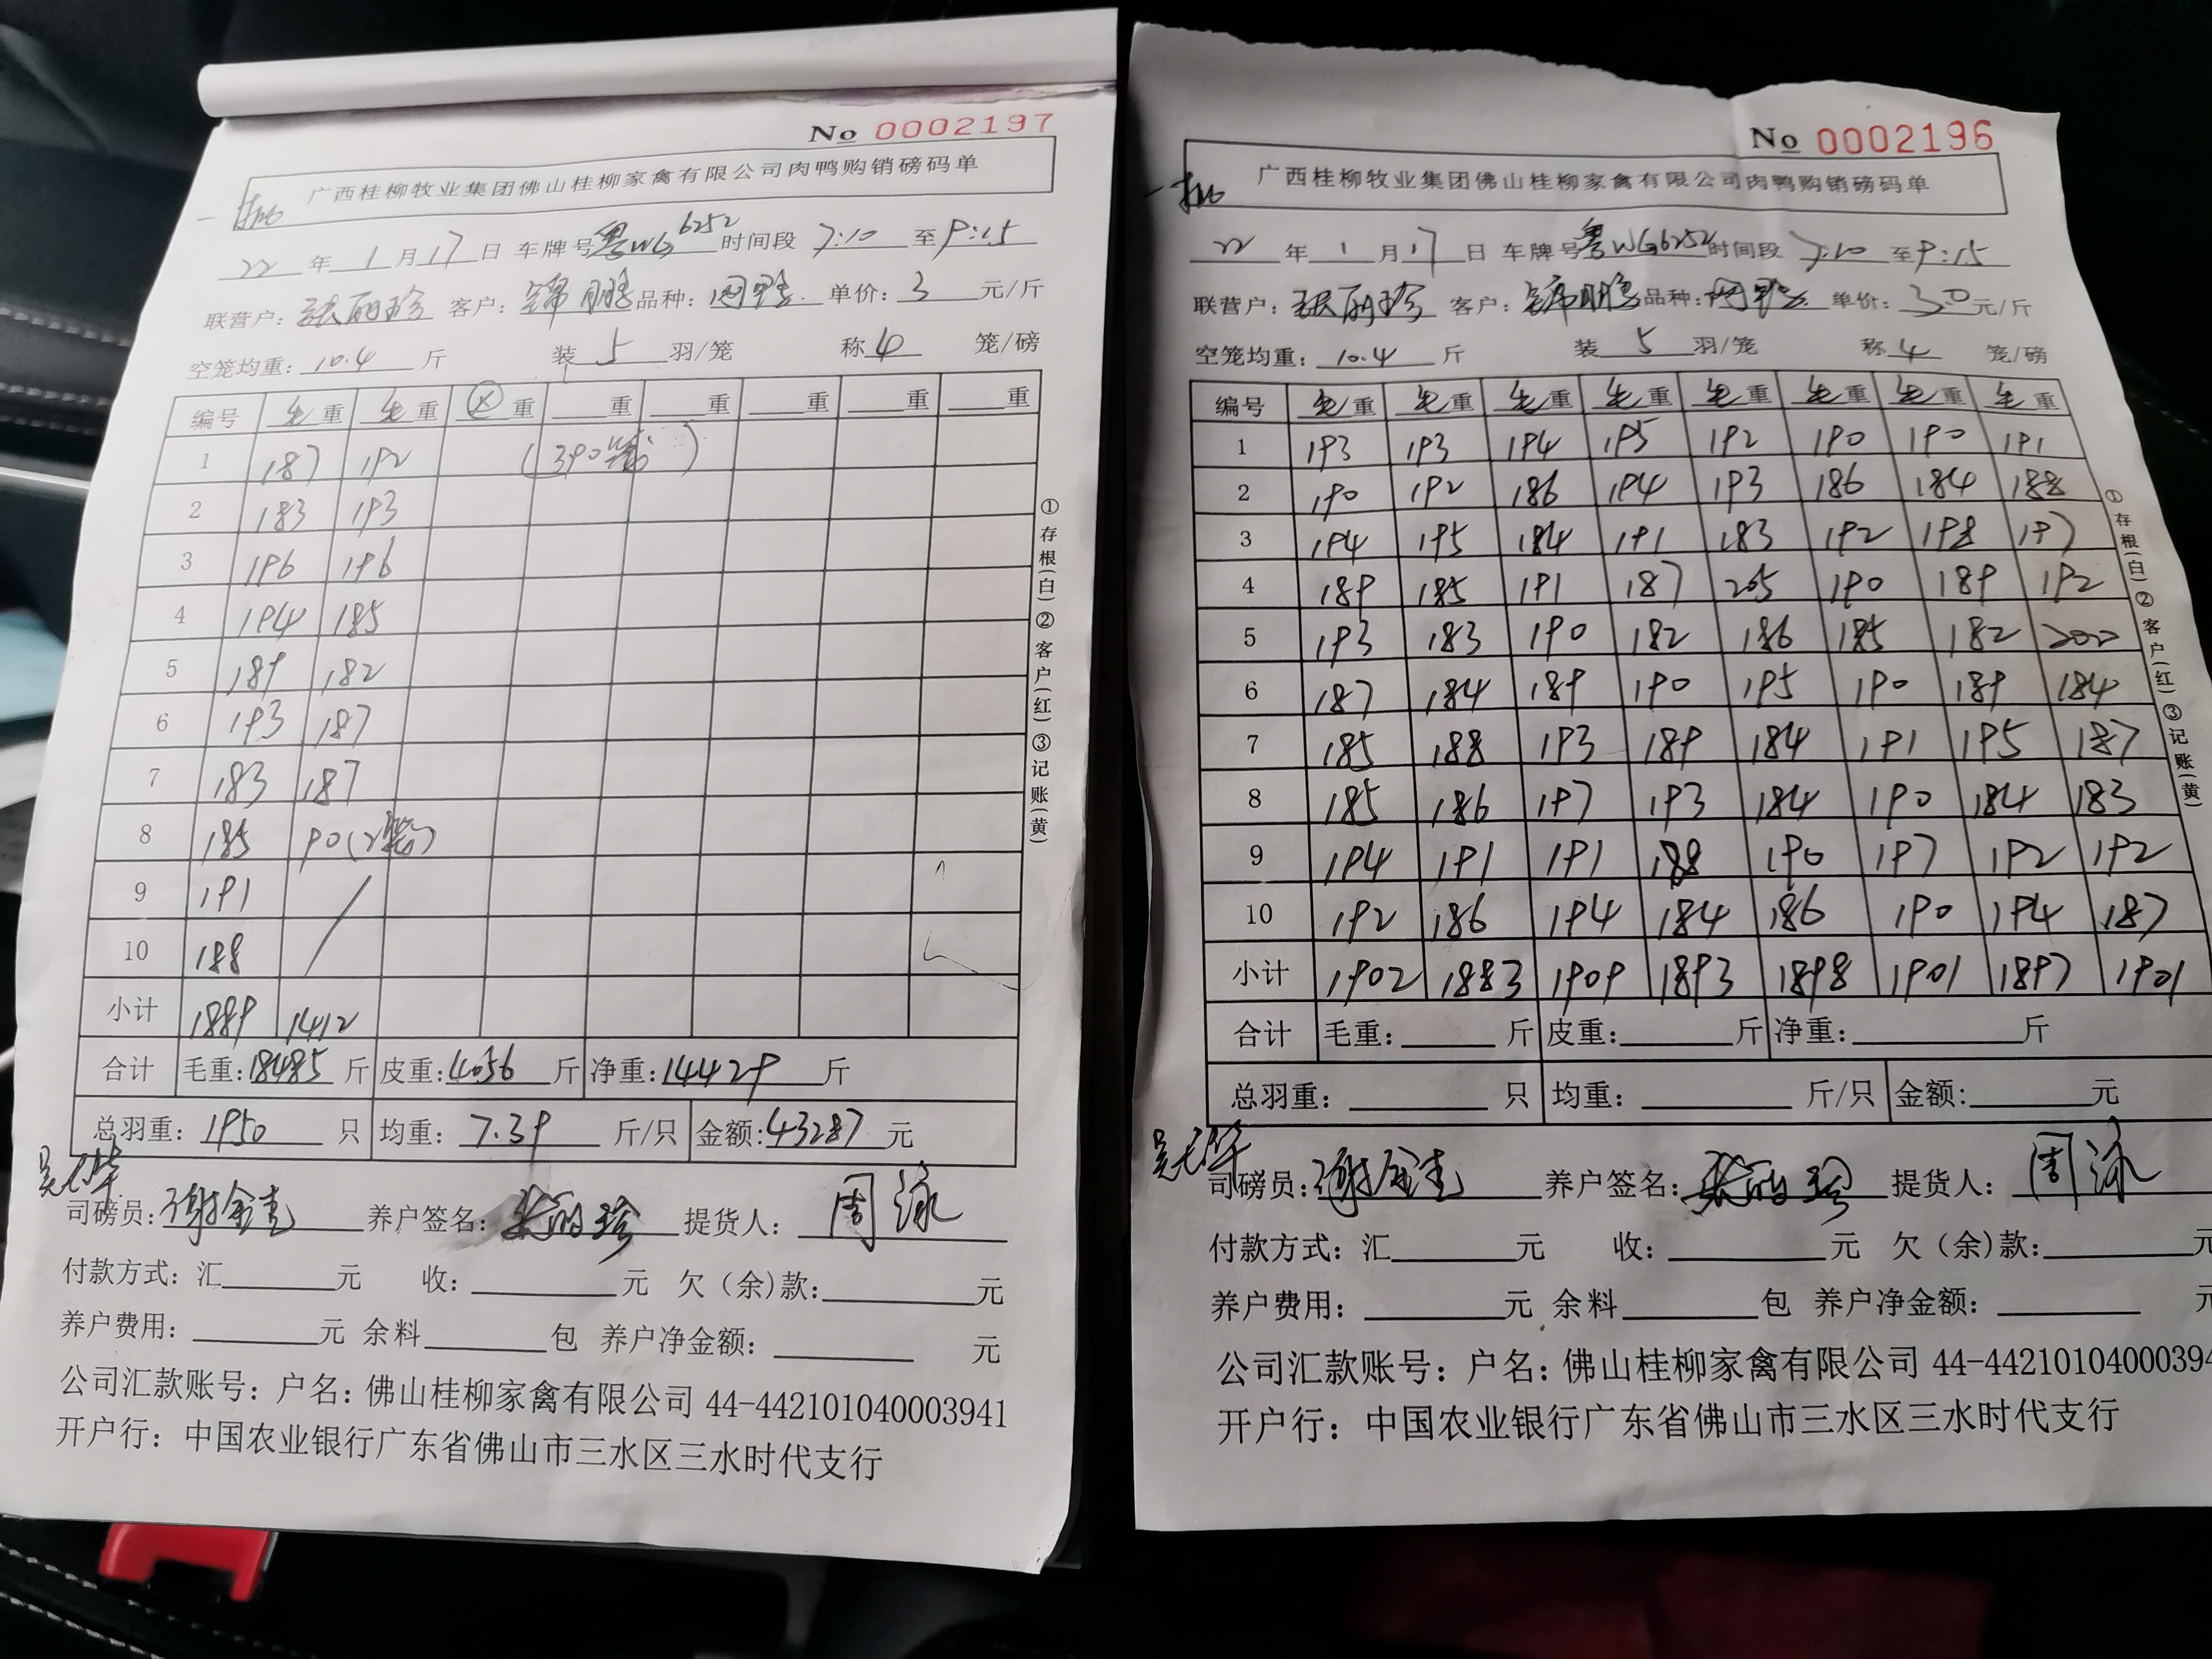 No 0002197
广西桂柳牧业集团佛山桂柳家禽有限公司肉鸭购销磅码单
一批
22 年 1 月 17 日 车牌号 粤WG6252 时间段 7:10 至 9:15
联营户: 张丽珍 客户: 锦鹏 品种: 肉鸭 单价: 3 元/斤
空笼均重: 10.4 斤 装 5 羽/笼 称 4 笼/磅
编号 毛重 毛重 重 重 重 重 重 重
1 187 192 (390笼)
2 183 193
3 196 196
4 194 185
5 189 182
6 193 187
7 183 187
8 185 90(2笼)
9 191
10 188
小计 1889 1412
合计 毛重: 18485 斤 皮重: 4056 斤 净重: 14429 斤
总羽重: 1950 只 均重: 7.39 斤/只 金额: 43287 元
司磅员: 养户签名: 张丽珍 提货人: 周泳
付款方式: 汇 元 收: 元 欠(余)款: 元
养户费用: 元 余料 包 养户净金额: 元
公司汇款账号: 户名: 佛山桂柳家禽有限公司 44-442101040003941
开户行: 中国农业银行广东省佛山市三水区三水时代支行
①存根(白)②客户(红)③记账(黄)
No 0002196
广西桂柳牧业集团佛山桂柳家禽有限公司肉鸭购销磅码单
一批
22 年 1 月 17 日 车牌号 粤WG6252 时间段 7:10 至 9:15
联营户: 张丽珍 客户: 锦鹏 品种: 肉鸭 单价: 3.0 元/斤
空笼均重: 10.4 斤 装 5 羽/笼 称 4 笼/磅
编号 毛重 毛重 毛重 毛重 毛重 毛重 毛重 毛重
1 193 193 194 195 192 190 190 191
2 190 192 186 194 193 186 184 188
3 194 195 184 191 183 192 198 197
4 189 185 191 187 205 190 189 192
5 193 183 190 182 186 185 182 200
6 187 184 189 190 195 190 189 184
7 185 188 193 189 184 191 195 187
8 185 186 197 193 184 190 184 183
9 194 191 191 188 190 197 192 192
10 192 186 194 184 186 190 194 187
小计 1902 1883 1909 1893 1898 1901 1897 1901
合计 毛重: 斤 皮重: 斤 净重: 斤
总羽重: 只 均重: 斤/只 金额: 元
司磅员: 养户签名: 张丽珍 提货人: 周泳
付款方式: 汇 元 收: 元 欠(余)款: 元
养户费用: 元 余料 包 养户净金额: 元
公司汇款账号: 户名: 佛山桂柳家禽有限公司 44-44210104000394
开户行: 中国农业银行广东省佛山市三水区三水时代支行
①存根(白)②客户(红)③记账(黄)